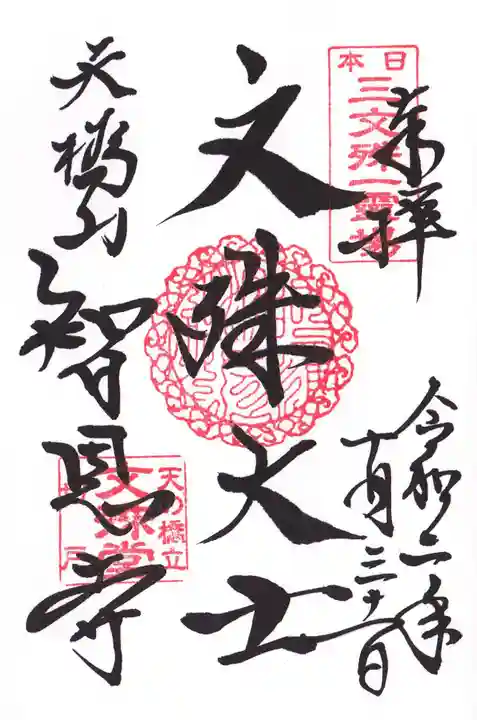 奉拝
日本
三文殊一霊場
令和二年
十月三十一日
文殊大士
天橋山
智恩寺
天の橋立
文殊堂